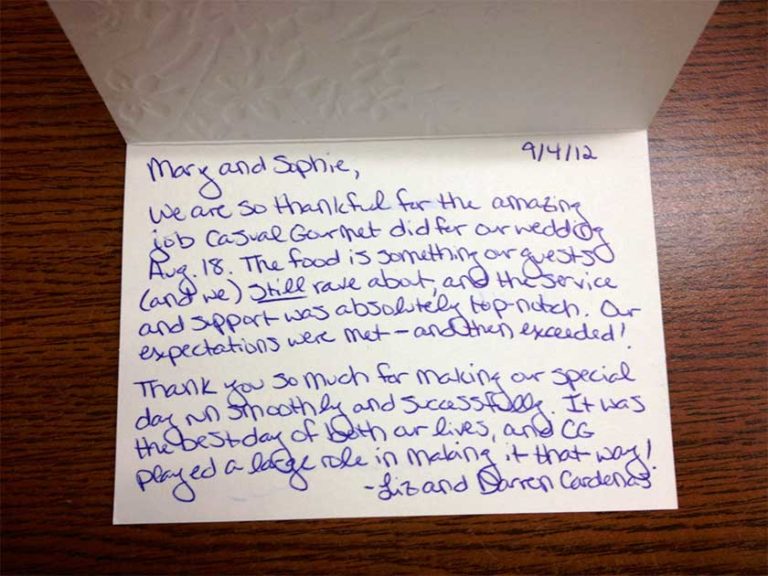 9/4/12
Mary and Sophie,
We are so thankful for the amazing
job Casual Gourmet did for our wedding
Aug. 18. The food is something our guests
(and we) still rave about, and the service
and support was absolutely top-notch. Our
expectations were met - and then exceeded!
Thank you so much for making our special
day run smoothly and successfully. It was
the best day of both our lives, and CG
played a large role in making it that way!
- Liz and Darren Cardenas